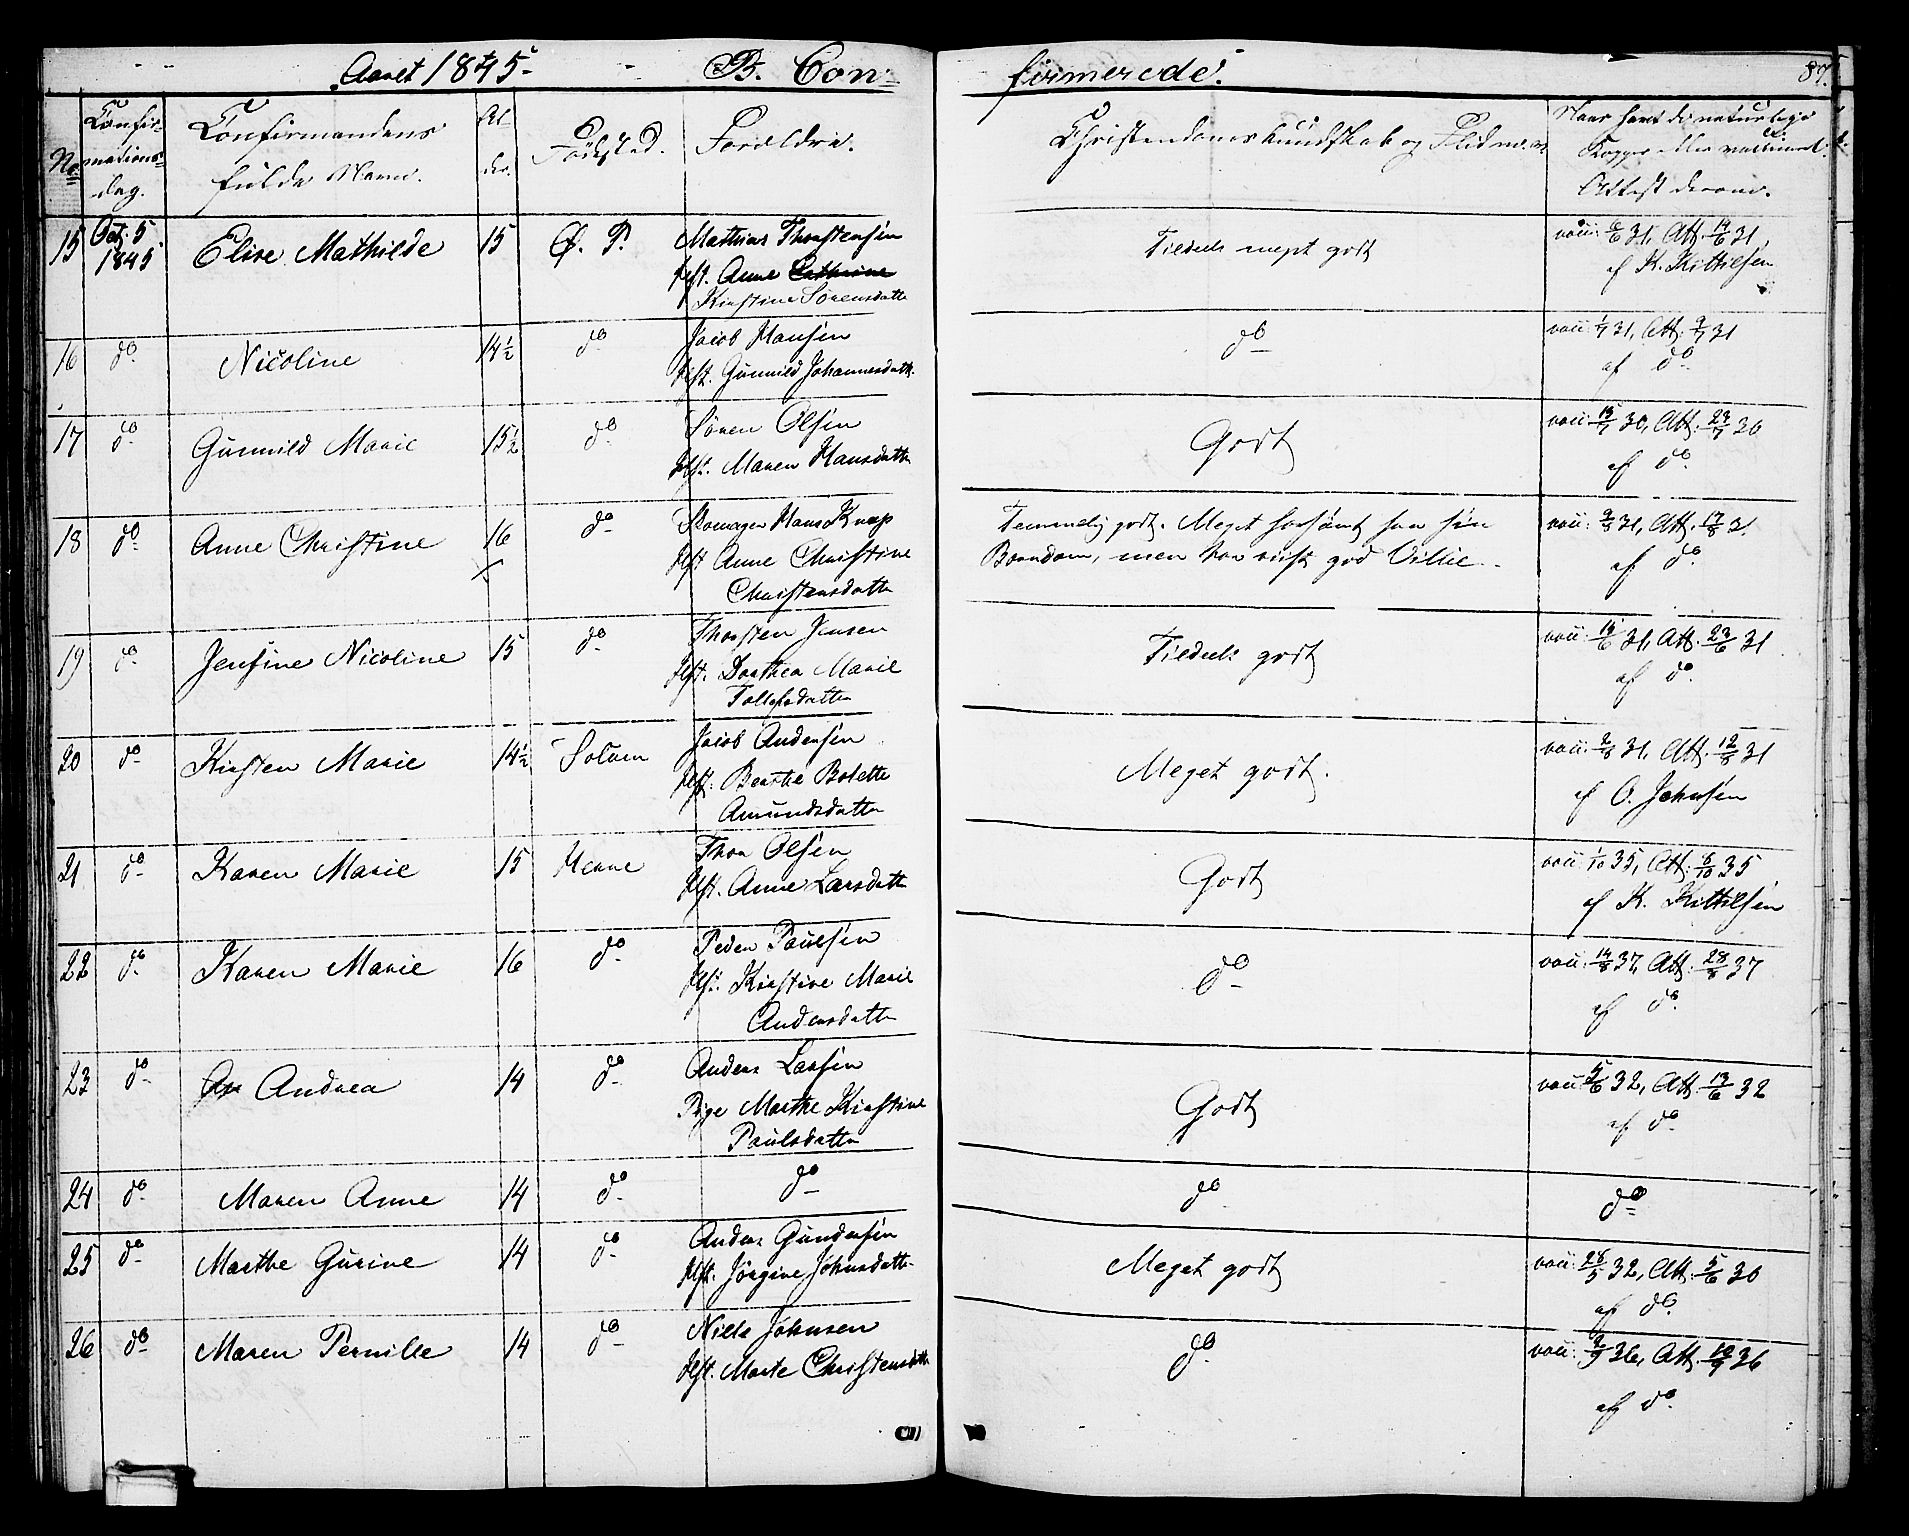 Aaret 1845. B. Con-
firmerede. 87.
No Confir-
mations-
dag.
Confirmandens
fulde Navn.
Al-
der.
Födested.
Foreldre.
Christendomskundskab og Flid m.v.
Naar havt de naturlige
Kopper eller vaccineret.
Attest derom.
15 Oct. 5 1845 Elise Mathilde 15 Ø. P. Mathias Thorstensen
Hst. Anne Cathrine
Kirstine Sörensdatter
Tildeels meget godt
vacc: 6/6 31, Att. 14/6 31,
af K. Kittilsen
16 do Nicoline 14½ do Jacob Hansen
Hst. Gunnild Johannesdatt.
do
vacc: 1/7 31, Att. 9/7 31
af do.
17 do Gunnild Marie 15½ do Sören Olsen
Hst. Maren Hansdatter
Godt
vacc: 15/7 30, Att. 23/7 30
af do.
18 do Anne Christine 16 do Hans Knap
Hst Anne Christine
Christensdatter
Temmelig godt. Meget forsömt fra sin
Barndom, men har viist god Villie.
vacc: 9/8 31, Att. 17/8 31.
af do
19 do Jensine Nicoline 15 do Thorsten Jensen
Hst. Dorthea Marie
Tollefsdatter
Tildeels godt
vacc: 15/6 31, Att. 23/6 31
af do.
20 do Kirsten Marie 14½ Solum Jacob Andersen
Hst. Berthe Bolette
Amundsdatter
Meget godt.
vacc: 2/8 31, Att. 12/8 31
af O. Johnsen
21 do Karen Marie 15 Herre Thor Olsen
Hst. Anne Larsdatter
Godt
vacc: 1/10 35, Att. 8/10 35
af K. Kittilsen
22 do Karen Marie 16 do Peder Paulsen
Hst. Kirstine Marie
Andersdatter
do
vacc: 14/8 37, Att. 28/8 37
af do.
23 do Andrea 14 do Anders Larsen
Pige Marthe Kirstine
Paulsdatter
Godt
vacc: 5/6 32, Att. 13/6 32
af do.
24 do Maren Anne 14 do do
do
do
25 do Marthe Gurine 14 do Anders Gundersen
Hst. Jörgine Johnsdatter
Meget godt
vacc: 28/5 32, Att. 5/6 30
af do.
26 do Maren Pernille 14 do Niels Johnsen
Hst. Marte Christensdatter
do
vacc: 2/9 36, Att. 10/9 36
af do.